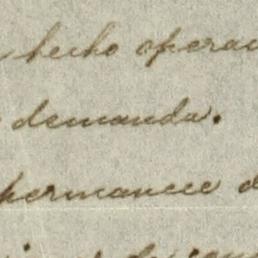 hecho operac
demanda.
permanece d